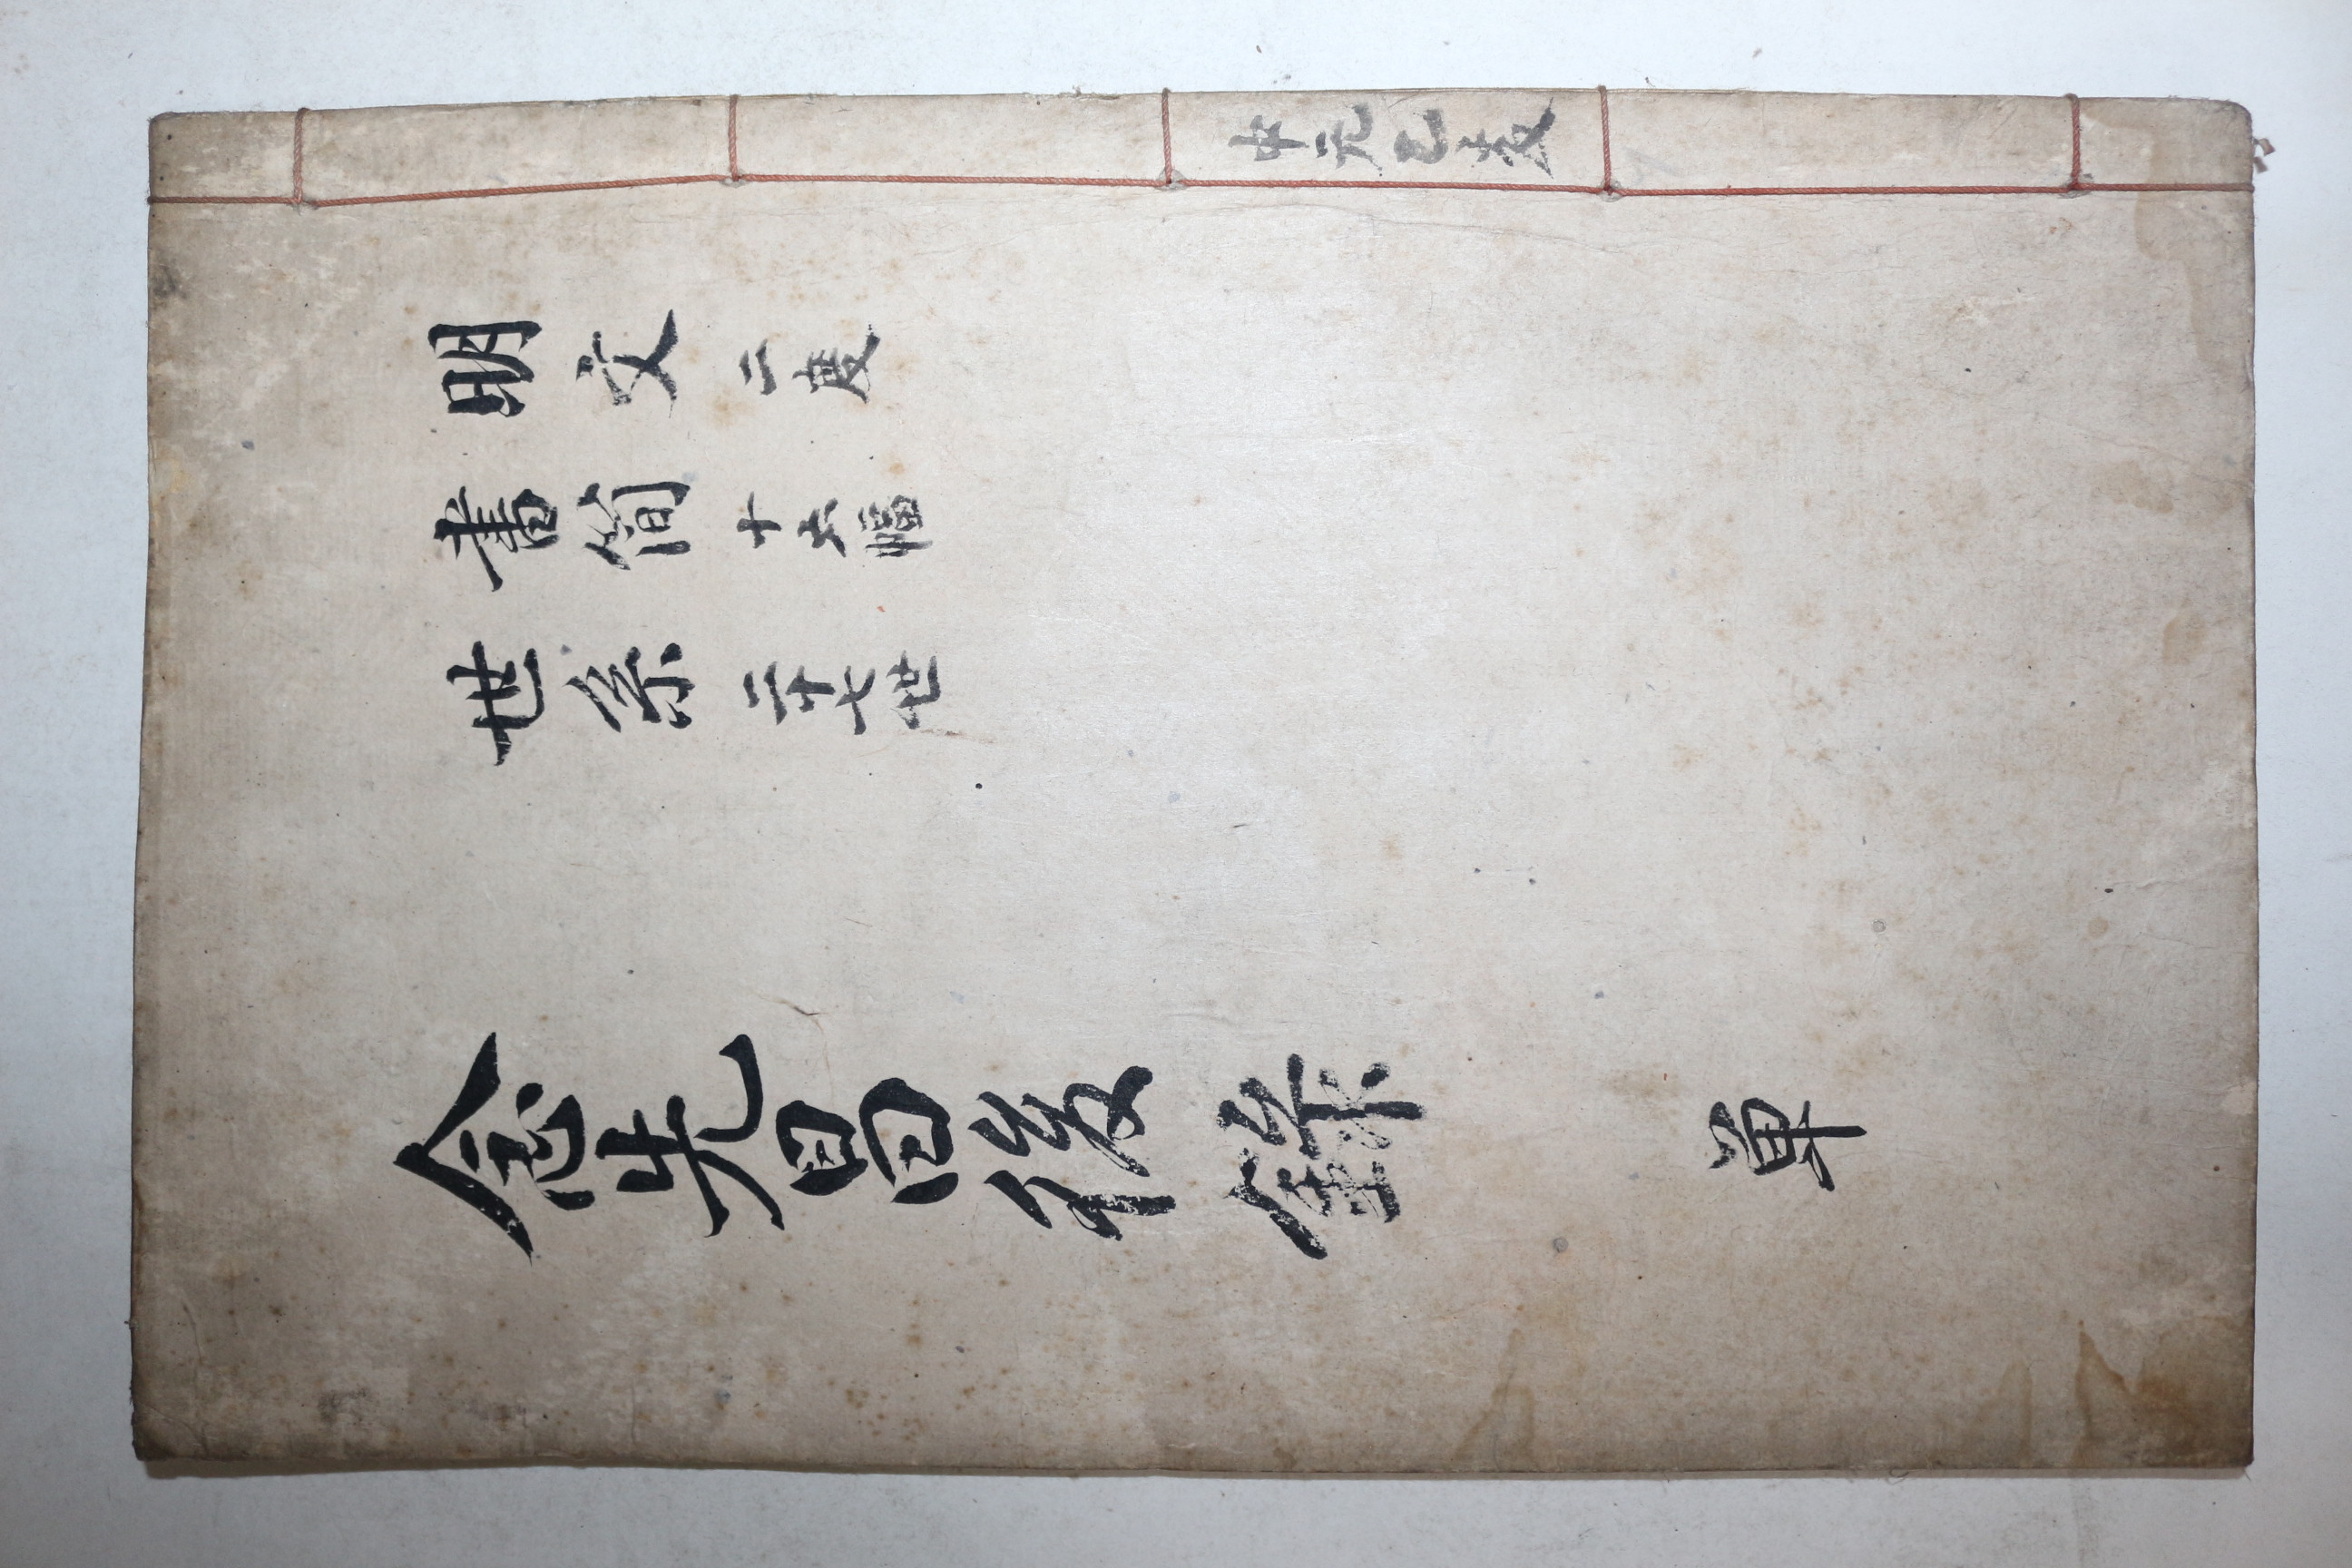 中元
明文 二度
書簡 十六幅
世系 二十七世
念先昌後錄 單